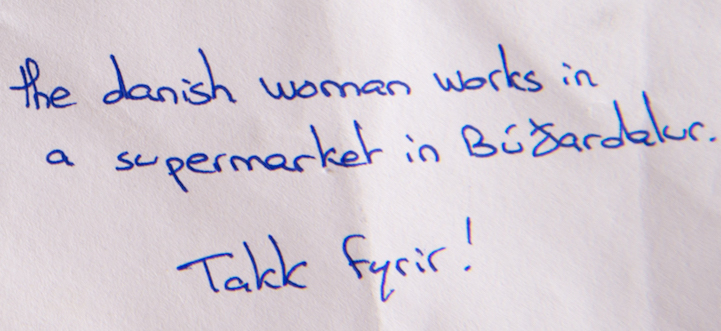 the danish woman works in
a supermarket in Búðardalur.
Takk fyrir!